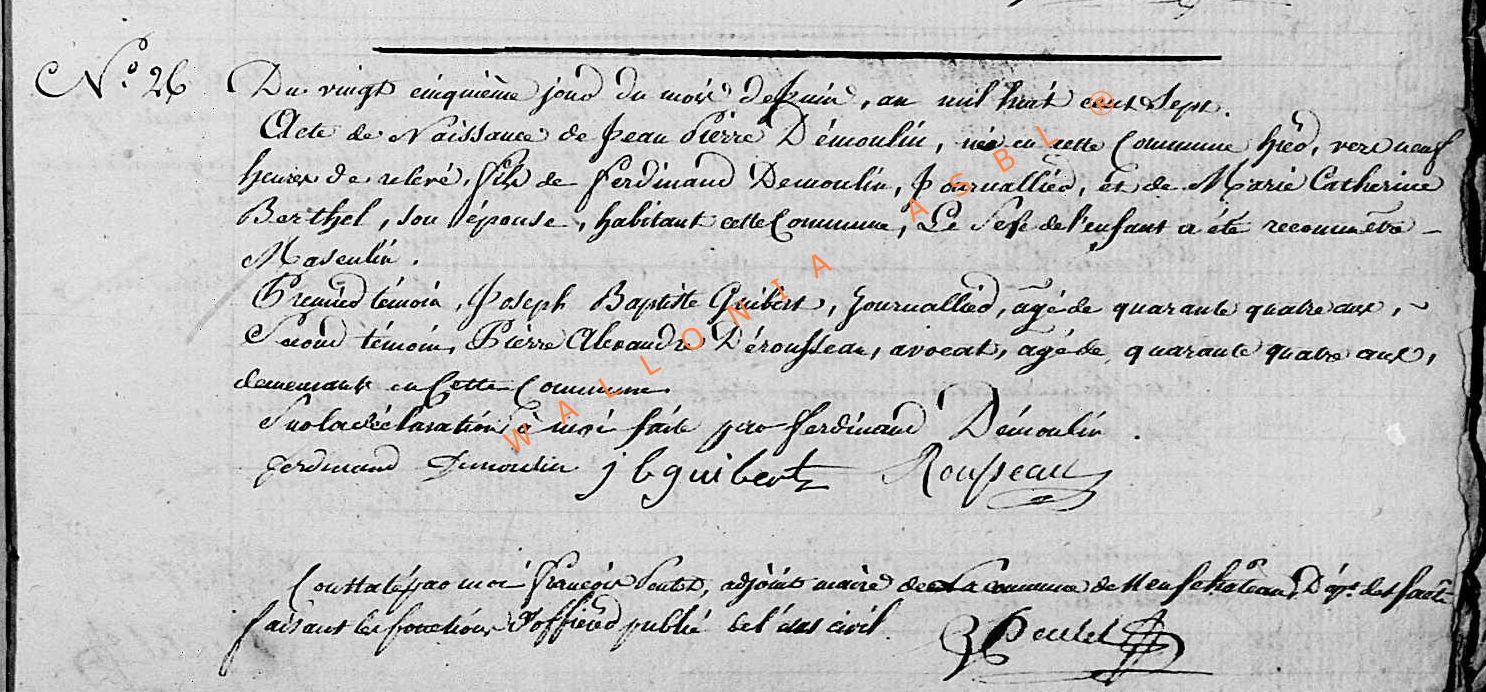 N.º 26
Du vingt cinquième jour du mois de Juin, an mil huit cent sept.
Acte de Naissance de Jean Pièrre Démoulin, née en cette Commune hiér, vers neuf
heures de relevé, fils de ferdinand Demoulin, Journalliér, et de Marie Catherine
Barthel, son épouse, habitant cette Commune, Le Sexe de l'enfant a été reconnu être
Masculin.
Premiér témoin, Joseph Baptiste Guibert, journalliér, agé de quarante quatre ans,
Second témoin, Pièrre Alexandre Dérousseau, avocat, agé de quarante quatre ans,
demeurants en Cette Commune.
Sur la déclaration à moi faite par ferdinand Démoulin.
ferdinand Demoulin j b guibert Rousseau
Constaté par moi françois Poulet, adjoint maire de la commune de Neufchâteau, Dépt. des forêts
faisant les fonctions d'officiér publié de l'état civil. Poulet
WALLONIA ASBL ®